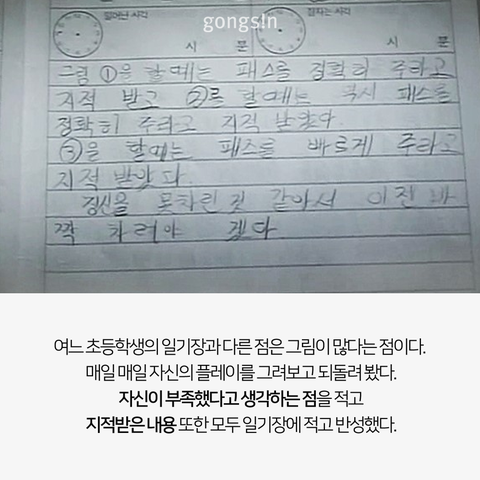 일어난 시각
잠자는 시각
gongsin
시 분
시 분
그림 ①을 할때는 패스를 정확히 주라고
지적 받고 ②를 할때는 역시 패스를
정확히 주라고 지적 받았다.
③을 할때는 패스를 빠르게 주라고
지적 받았다.
정신을 못차린것 같아서 이젠 바
짝 차려야 겠다
여느 초등학생의 일기장과 다른 점은 그림이 많다는 점이다.
매일 매일 자신의 플레이를 그려보고 되돌려 봤다.
자신이 부족했다고 생각하는 점을 적고
지적받은 내용 또한 모두 일기장에 적고 반성했다.